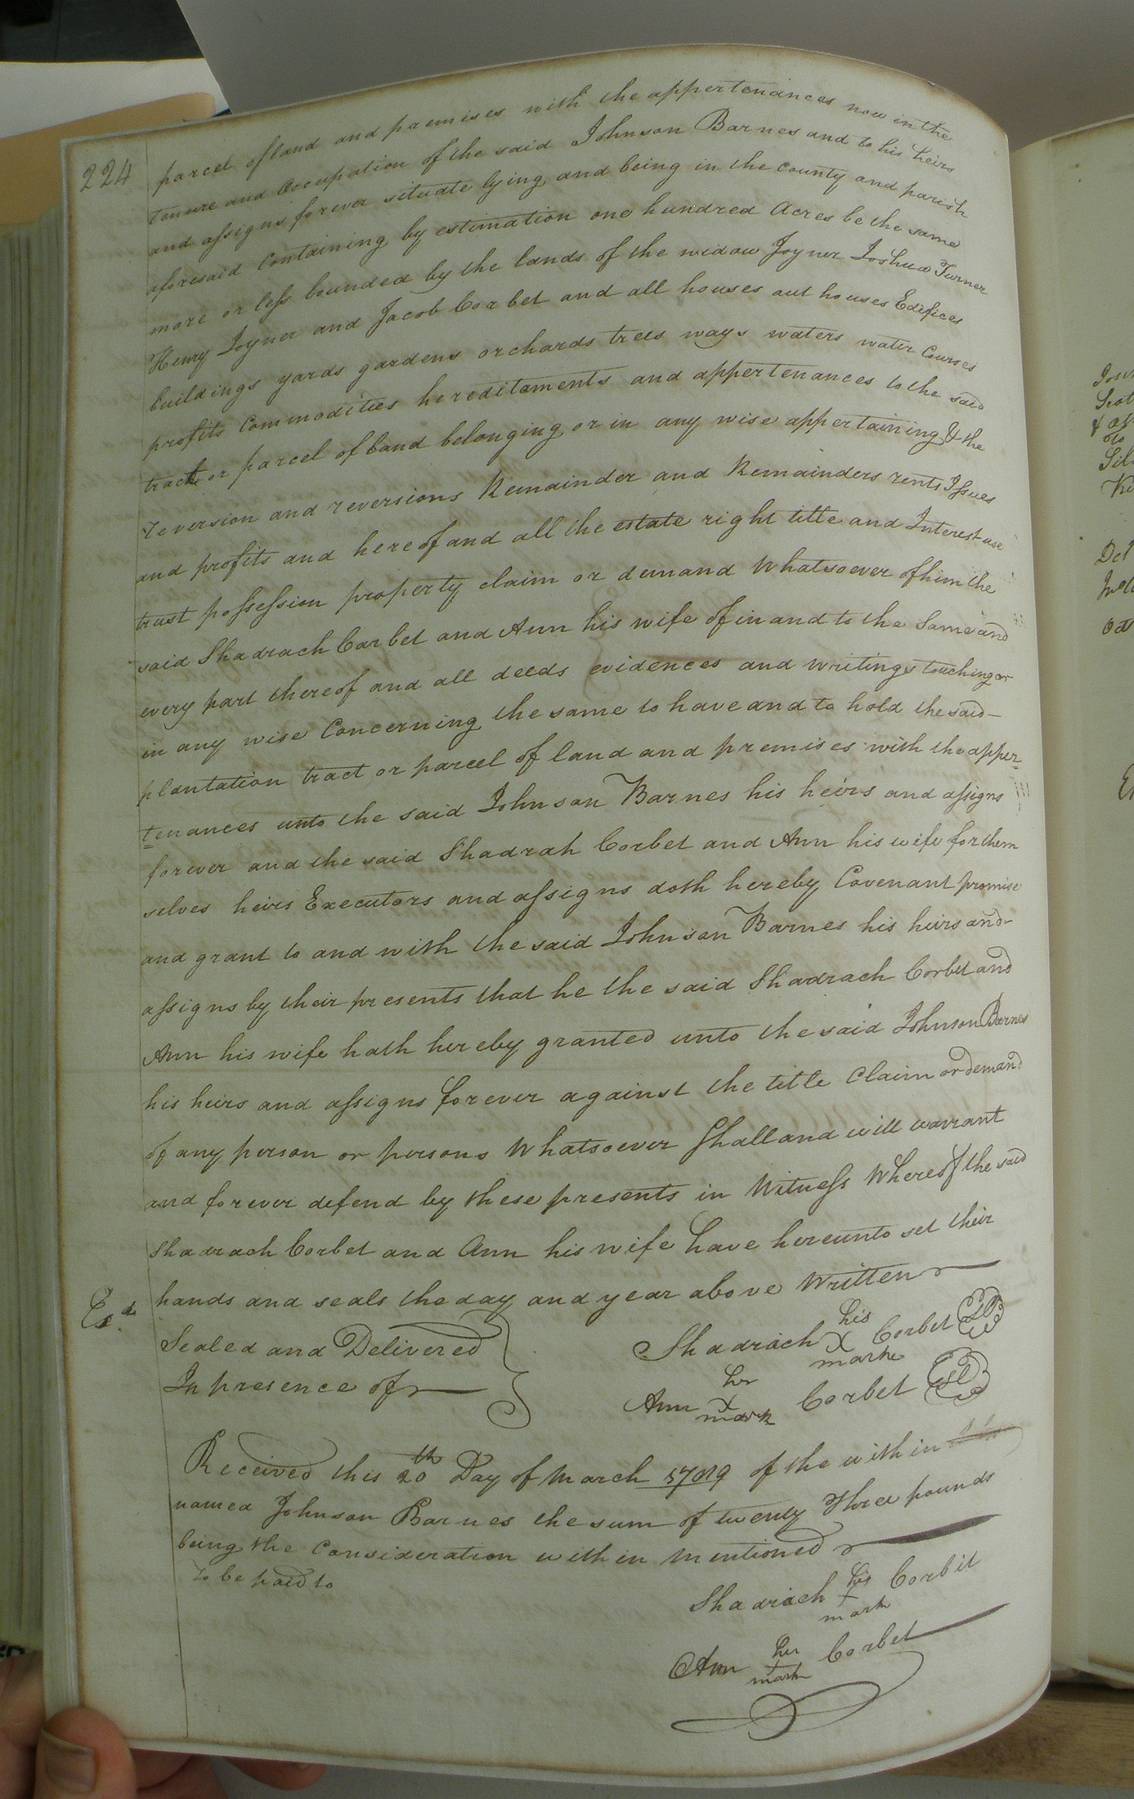 224
parcel of land and premises with the appertenances now in the
tenure and Occupation of the said Johnson Barnes and to his heirs
and assigns forever situate lying and being in the county and parish
aforesaid Containing by estimation one hundred Acres be the same
more or less bounded by the lands of the widow Joyner Joshua Turner
Henry Joyner and Jacob Corbet and all houses out houses Edifices
buildings yards gardens orchards trees ways waters water Courses
profits Commodities hereditaments and appertenances to the said
tract or parcel of Land belonging or in any wise appertaining & the
reversion and reversions Remainder and Remainders rents Issues
and profits and hereof and all the estate right title and Interest use
trust possession property claim or demand Whatsoever of him the
said Shadrach Corbet and Ann his wife of in and to the Same and
every part thereof and all deeds evidences and writings touching or
in any wise Concerning the same to have and to hold the said
plantation tract or parcel of land and premises with the apper-
tenances unto the said Johnson Barnes his heirs and assigns
forever and the said Shadrah Corbet and Ann his wife for them
selves heirs Executors and assigns doth hereby Covenant promise
and grant to and with the said Johnson Barnes his heirs and
assigns by their presents that he the said Shadrach Corbet and
Ann his wife hath hereby granted unto the said Johnson Barnes
his heirs and assigns forever against the title Claim or demand
of any person or persons Whatsoever Shall and will warrant
and forever defend by these presents in Witness Whereof the said
Shadrach Corbet and Ann his wife have hereunto set their
hands and seals the day and year above Written
Exd.
Sealed and Delivered
In presence of
Shadrach his X mark Corbet
Ann her X mark Corbet
Received this 20th Day of March of the within
named Johnson Barnes the sum of twenty Three pounds
being the Consideration within Mentioned
To be paid to
Shadrach his + mark Corbit
Ann her + mark Corbet